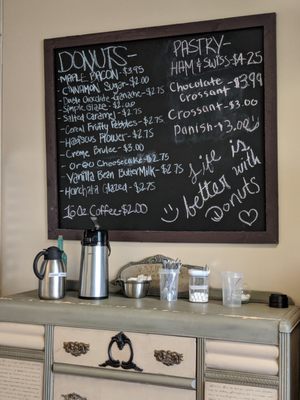 DONUTS-
MAPLE BACON-$3.95
CINNAMON SUGAR-$2.00
Double Chocolate Ganache-$2.75
Simple Glaze-$2.00
Salted Caramel-$2.75
Cereal Fruity Pebbles-$2.75
Hibiscus Flower-$2.75
Creme Brulee-$3.00
Oreo Cheesecake-$2.75
Vanilla Bean ButterMilk-$2.75
Horchata Glazed-$2.75
16 oz Coffee-$2.00
PASTRY-
HAM & SWISS-$4.25
Chocolate-$3.99
Crossant
Crossant-$3.00
Danish-$3.00
Life is
better with
Donuts